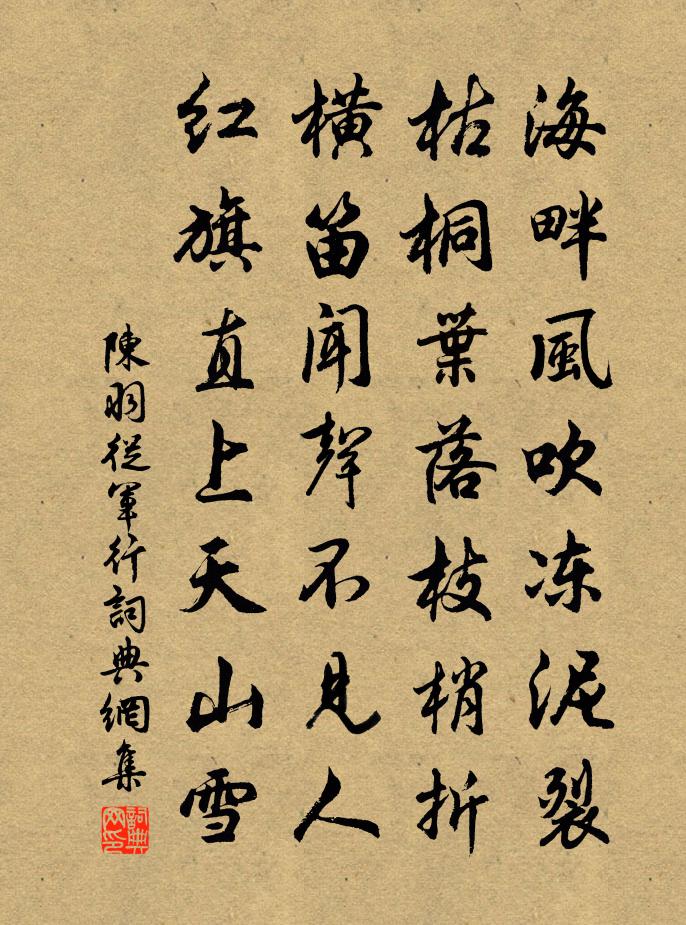 海畔風吹冻泥裂
枯桐葉落枝梢折
橫笛闻聲不見人
红旗直上天山雪
陳羽從軍行詞典網集
詞典网印